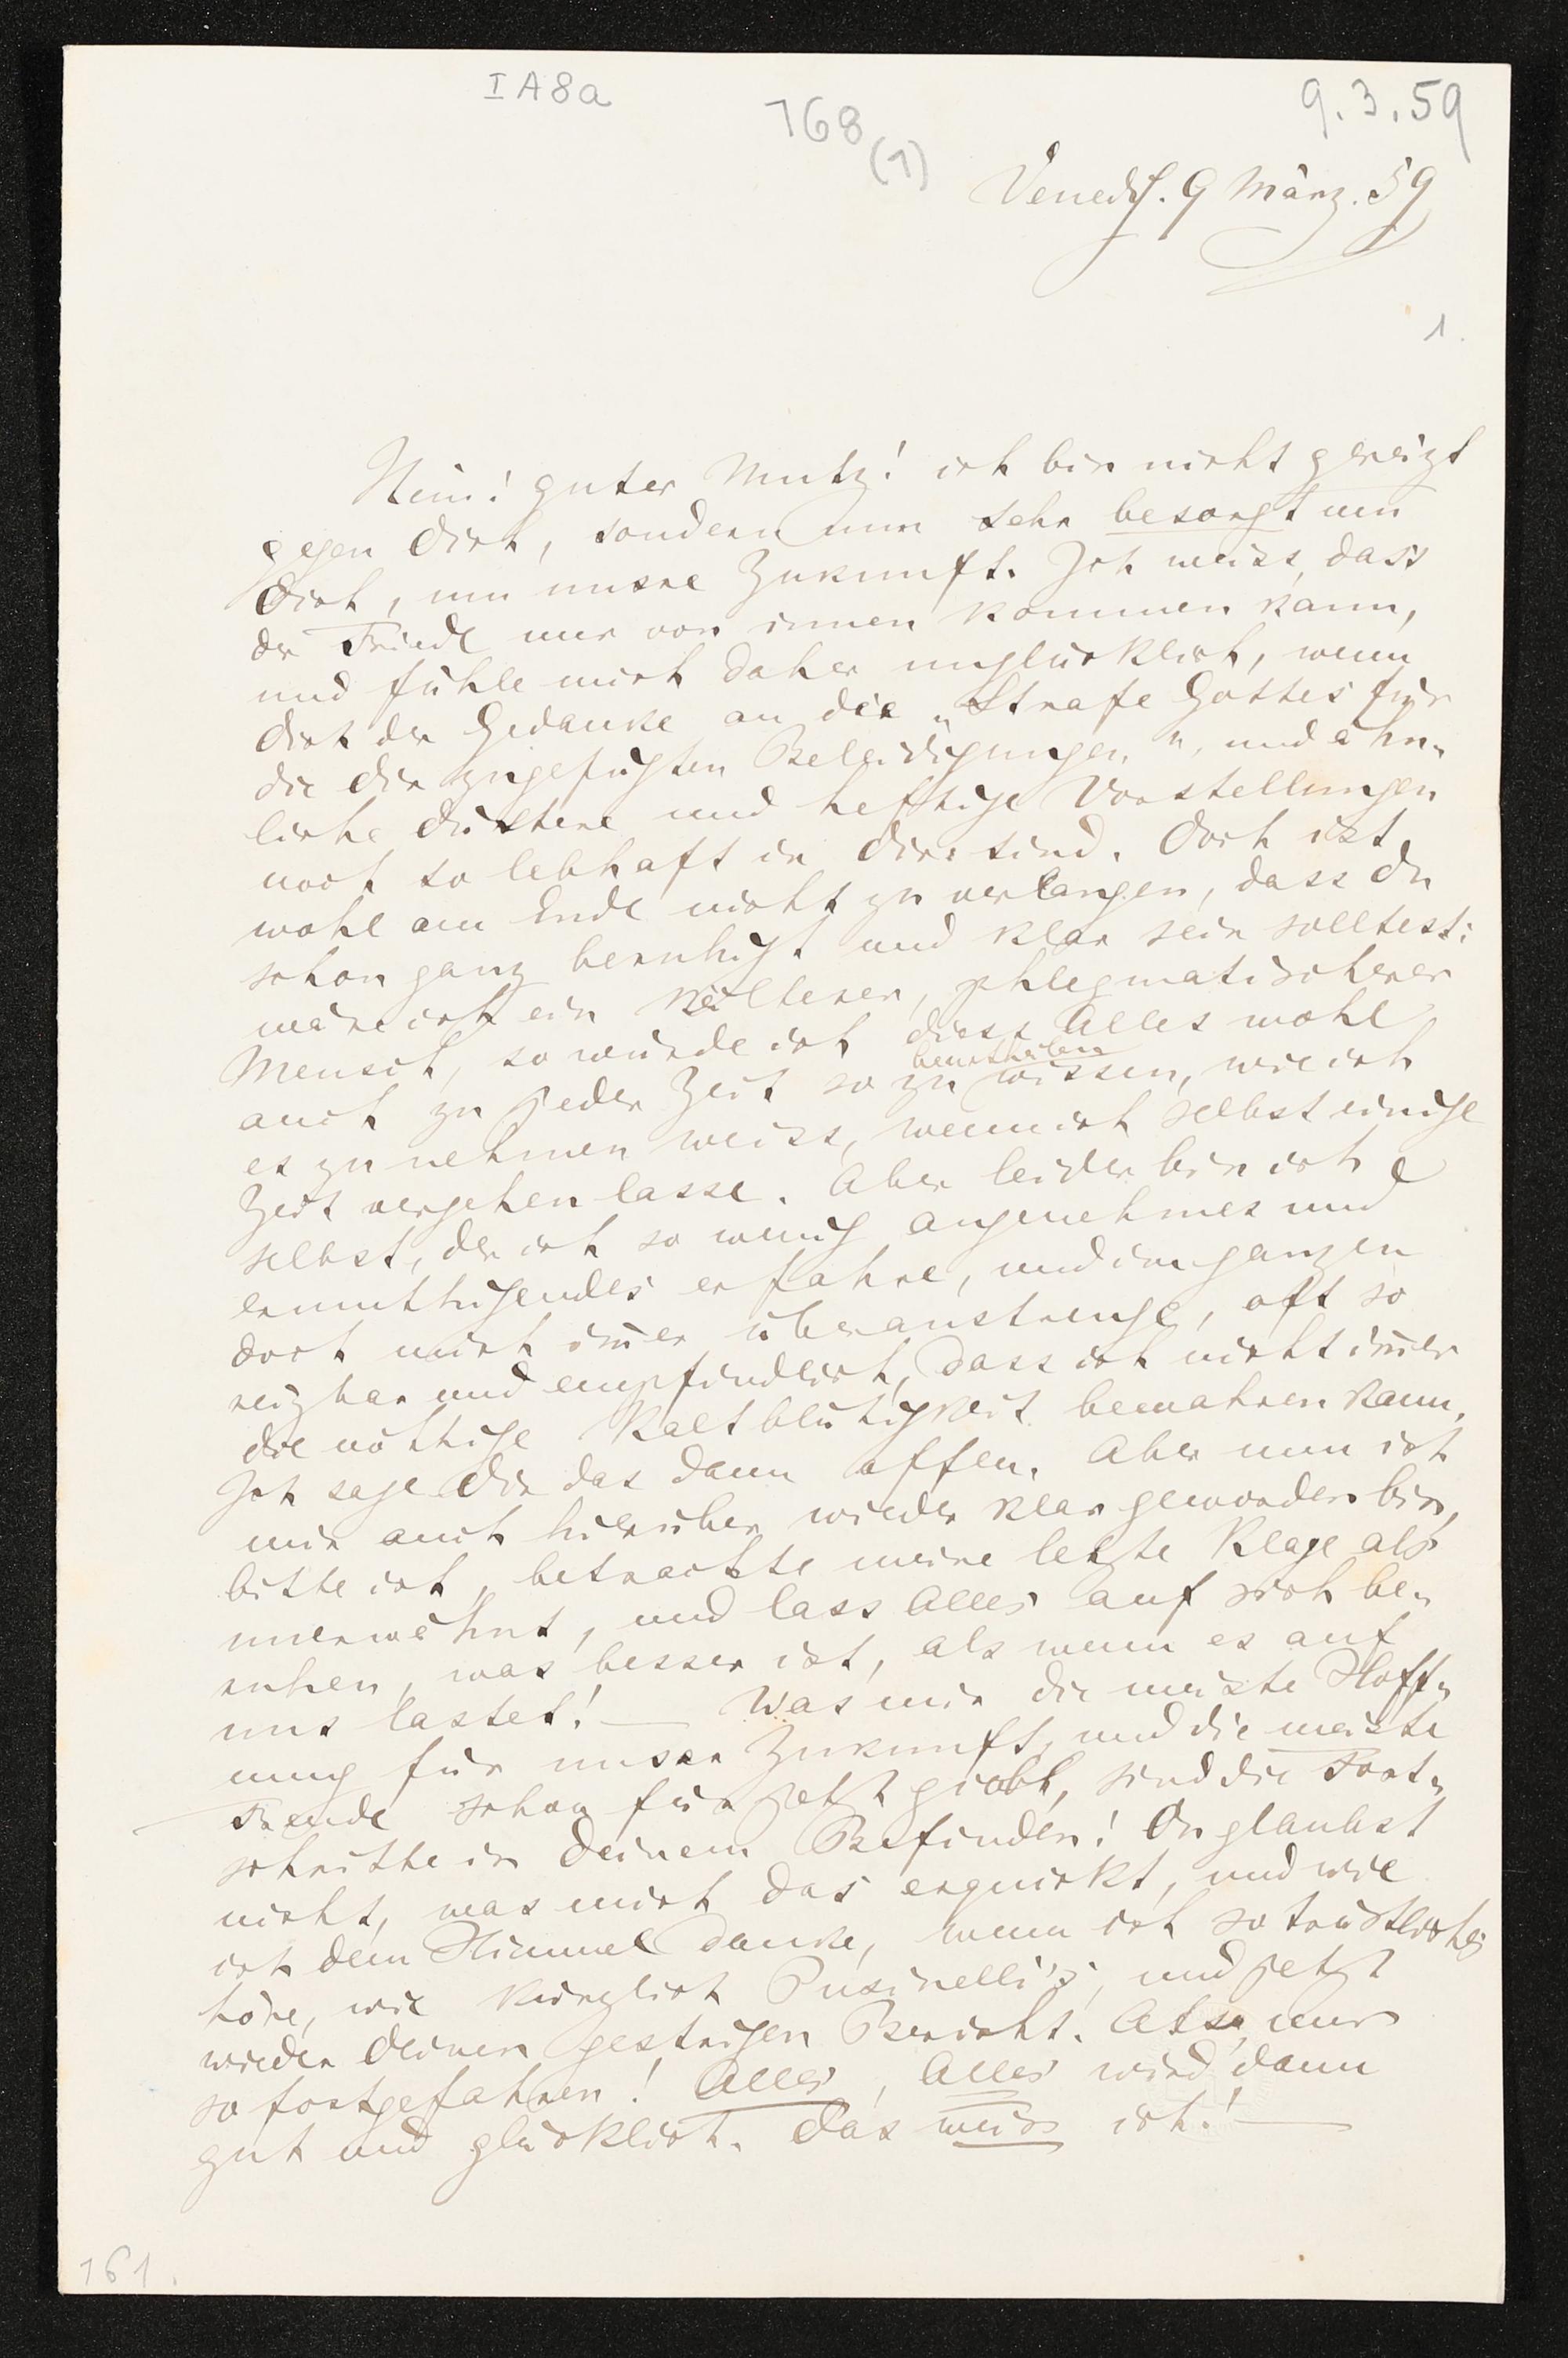 IA8a
168
(1)
9.3.59
Venedig. 9 März. 59
1.
Nein! guter Mutz! ich bin nicht gereizt
gegen Dich, sondern nur sehr besorgt um
Dich, um unsre Zukunft. Ich weiss, dass
der Friede nur von innen kommen kann,
und fühle mich daher unglücklich, wenn
Dich der Gedanke an die „Strafe Gottes für
die Dir zugefügten Beleidigungen", und ähn-
liche düstere und heftige Vorstellungen
noch so lebhaft in Dir sind. Doch ist
wohl am Ende nicht zu verlangen, dass Du
schon ganz beruhigt und klar sein solltest:
wäre ich ein kälterer, phlegmatischerer
Mensch, so würde ich diess Alles wohl
beurtheilen
auch zu jeder Zeit so zu wissen, wie ich
es zu nehmen weiss, wenn ich selbst einige
Zeit vergehen lasse. Aber leider bin ich
selbst, der ich so wenig angenehmes und
ermuthigendes erfahre, und im ganzen
doch mich immer überanstrenge, oft so
reizbar und empfindlich, dass ich nicht immer
die nöthige Kaltblütigkeit bewahren kann.
Ich sage Dir das dann offen. Aber nun ich
mir auch hierüber wieder klar geworden bin,
bitte ich, betrachte meine letzte Klage als
unerwähnt, und lass Alles auf sich be-
ruhen, was besser ist, als wenn es auf
uns lastet! — Was mir die meiste Hoff-
nung für unsre Zukunft, und die meiste
Freude schon für jetzt giebt, sind die Fort-
schritte in Deinem Befinden! Du glaubst
nicht, was mich das erquickt, und wie
ich dem Himmel danke, wenn ich so tröstliches
höre, wie kürzlich Pusinelli's, und jetzt
wieder Deinen gestrigen Bericht. Also, nur
so fortgefahren! Alles, Alles wird dann
gut und glücklich. Das weiss ich! —
161.